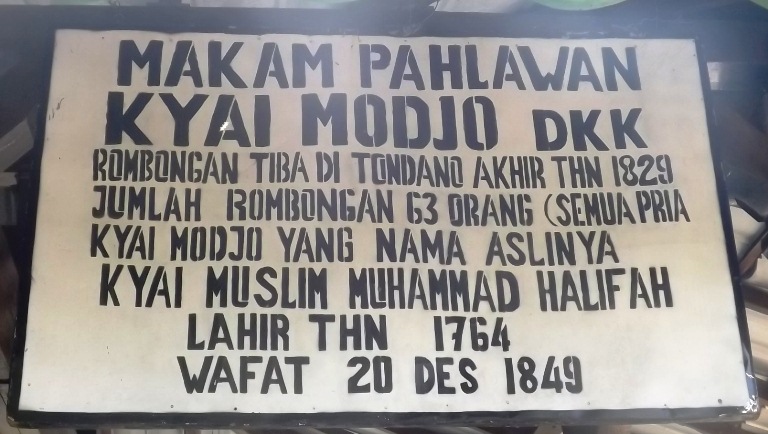 MAKAM PAHLAWAN
KYAI MODJO DKK
ROMBONGAN TIBA DI TONDANO AKHIR THN 1829
JUMLAH ROMBONGAN 63 ORANG (SEMUA PRIA
KYAI MODJO YANG NAMA ASLINYA
KYAI MUSLIM MUHAMMAD HALIFAH
LAHIR THN 1764
WAFAT 20 DES 1849